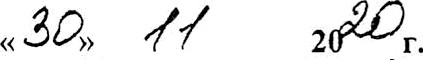 «30» 11 2020 г.